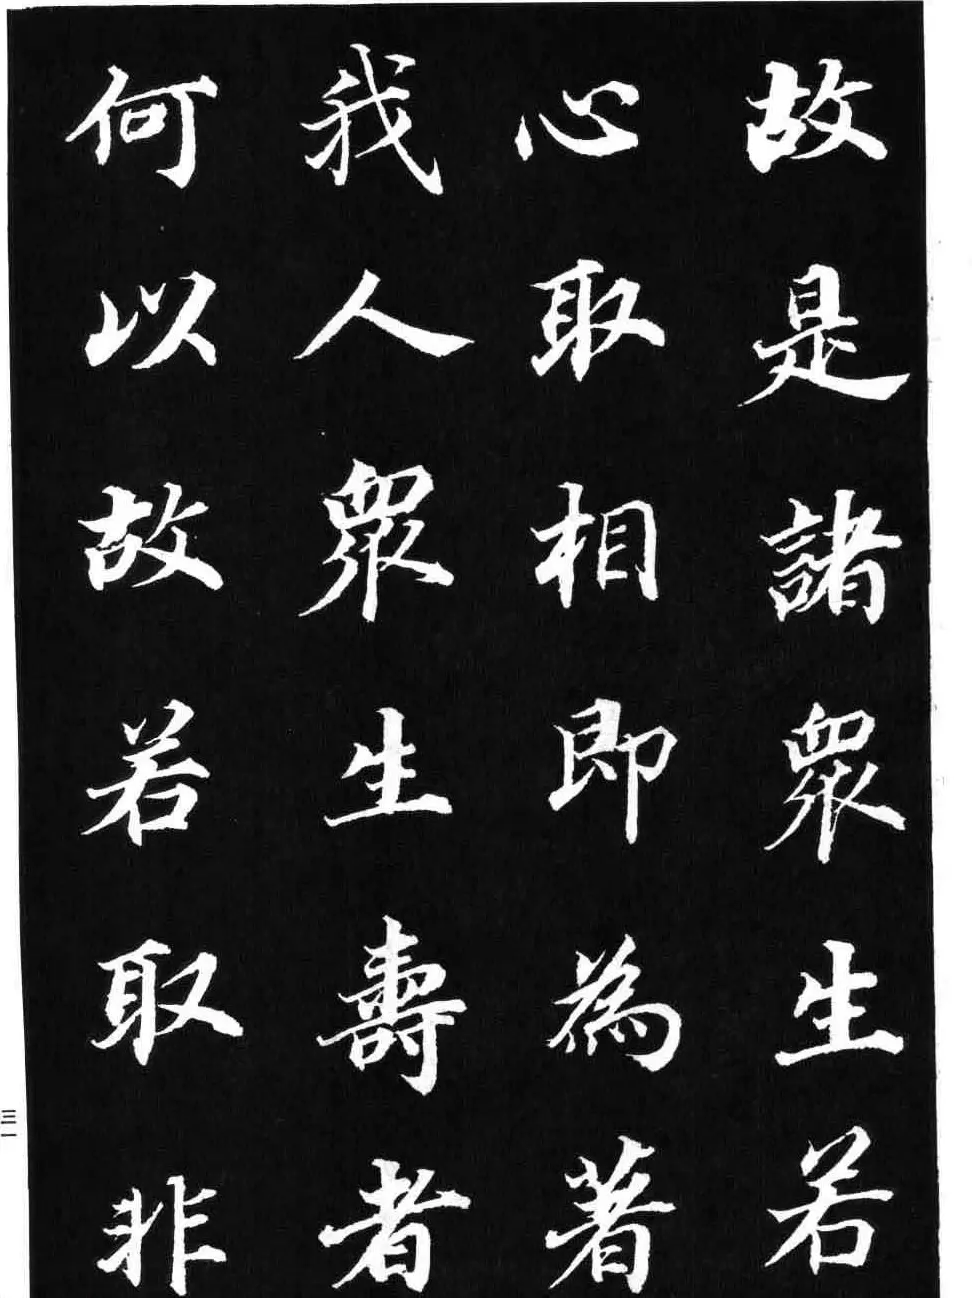 故是諸衆生若
心取相即為著
我人衆生壽者
何以故若取非
三一